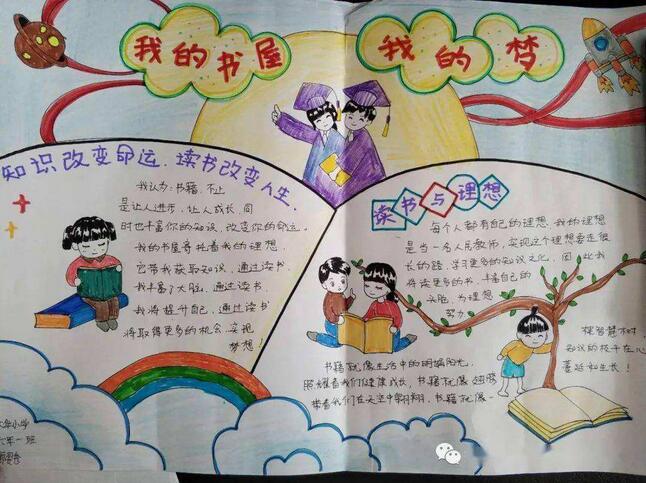 我的书屋
我的梦
知识改变命运.读书改变人生.
我认为:书籍,不止
是让人进步,让人成长,同
时也丰富你的知识,改变你的命运。
我的书屋寄托着我的理想,
它带我获取知识,通过读书
我丰富了大脑,通过读书
我将提升自己,通过读书
将取得更多的机会,实现
梦想!
读书与理想
每个人都有自己的理想,我的理想
是当一名人民教师,实现这个理想要走很
长的路,学习更多的知识文化,因此我
将读更多的书,丰富自己的
头脑,为理想
努力.
书籍就像生活中的明媚阳光,
照耀着我们健康成长,书籍就像翅膀
带着我们在天空中翱翔,书籍就像
智慧树!
知识的枝干在心
蔓延和生长!
小学
六年一班